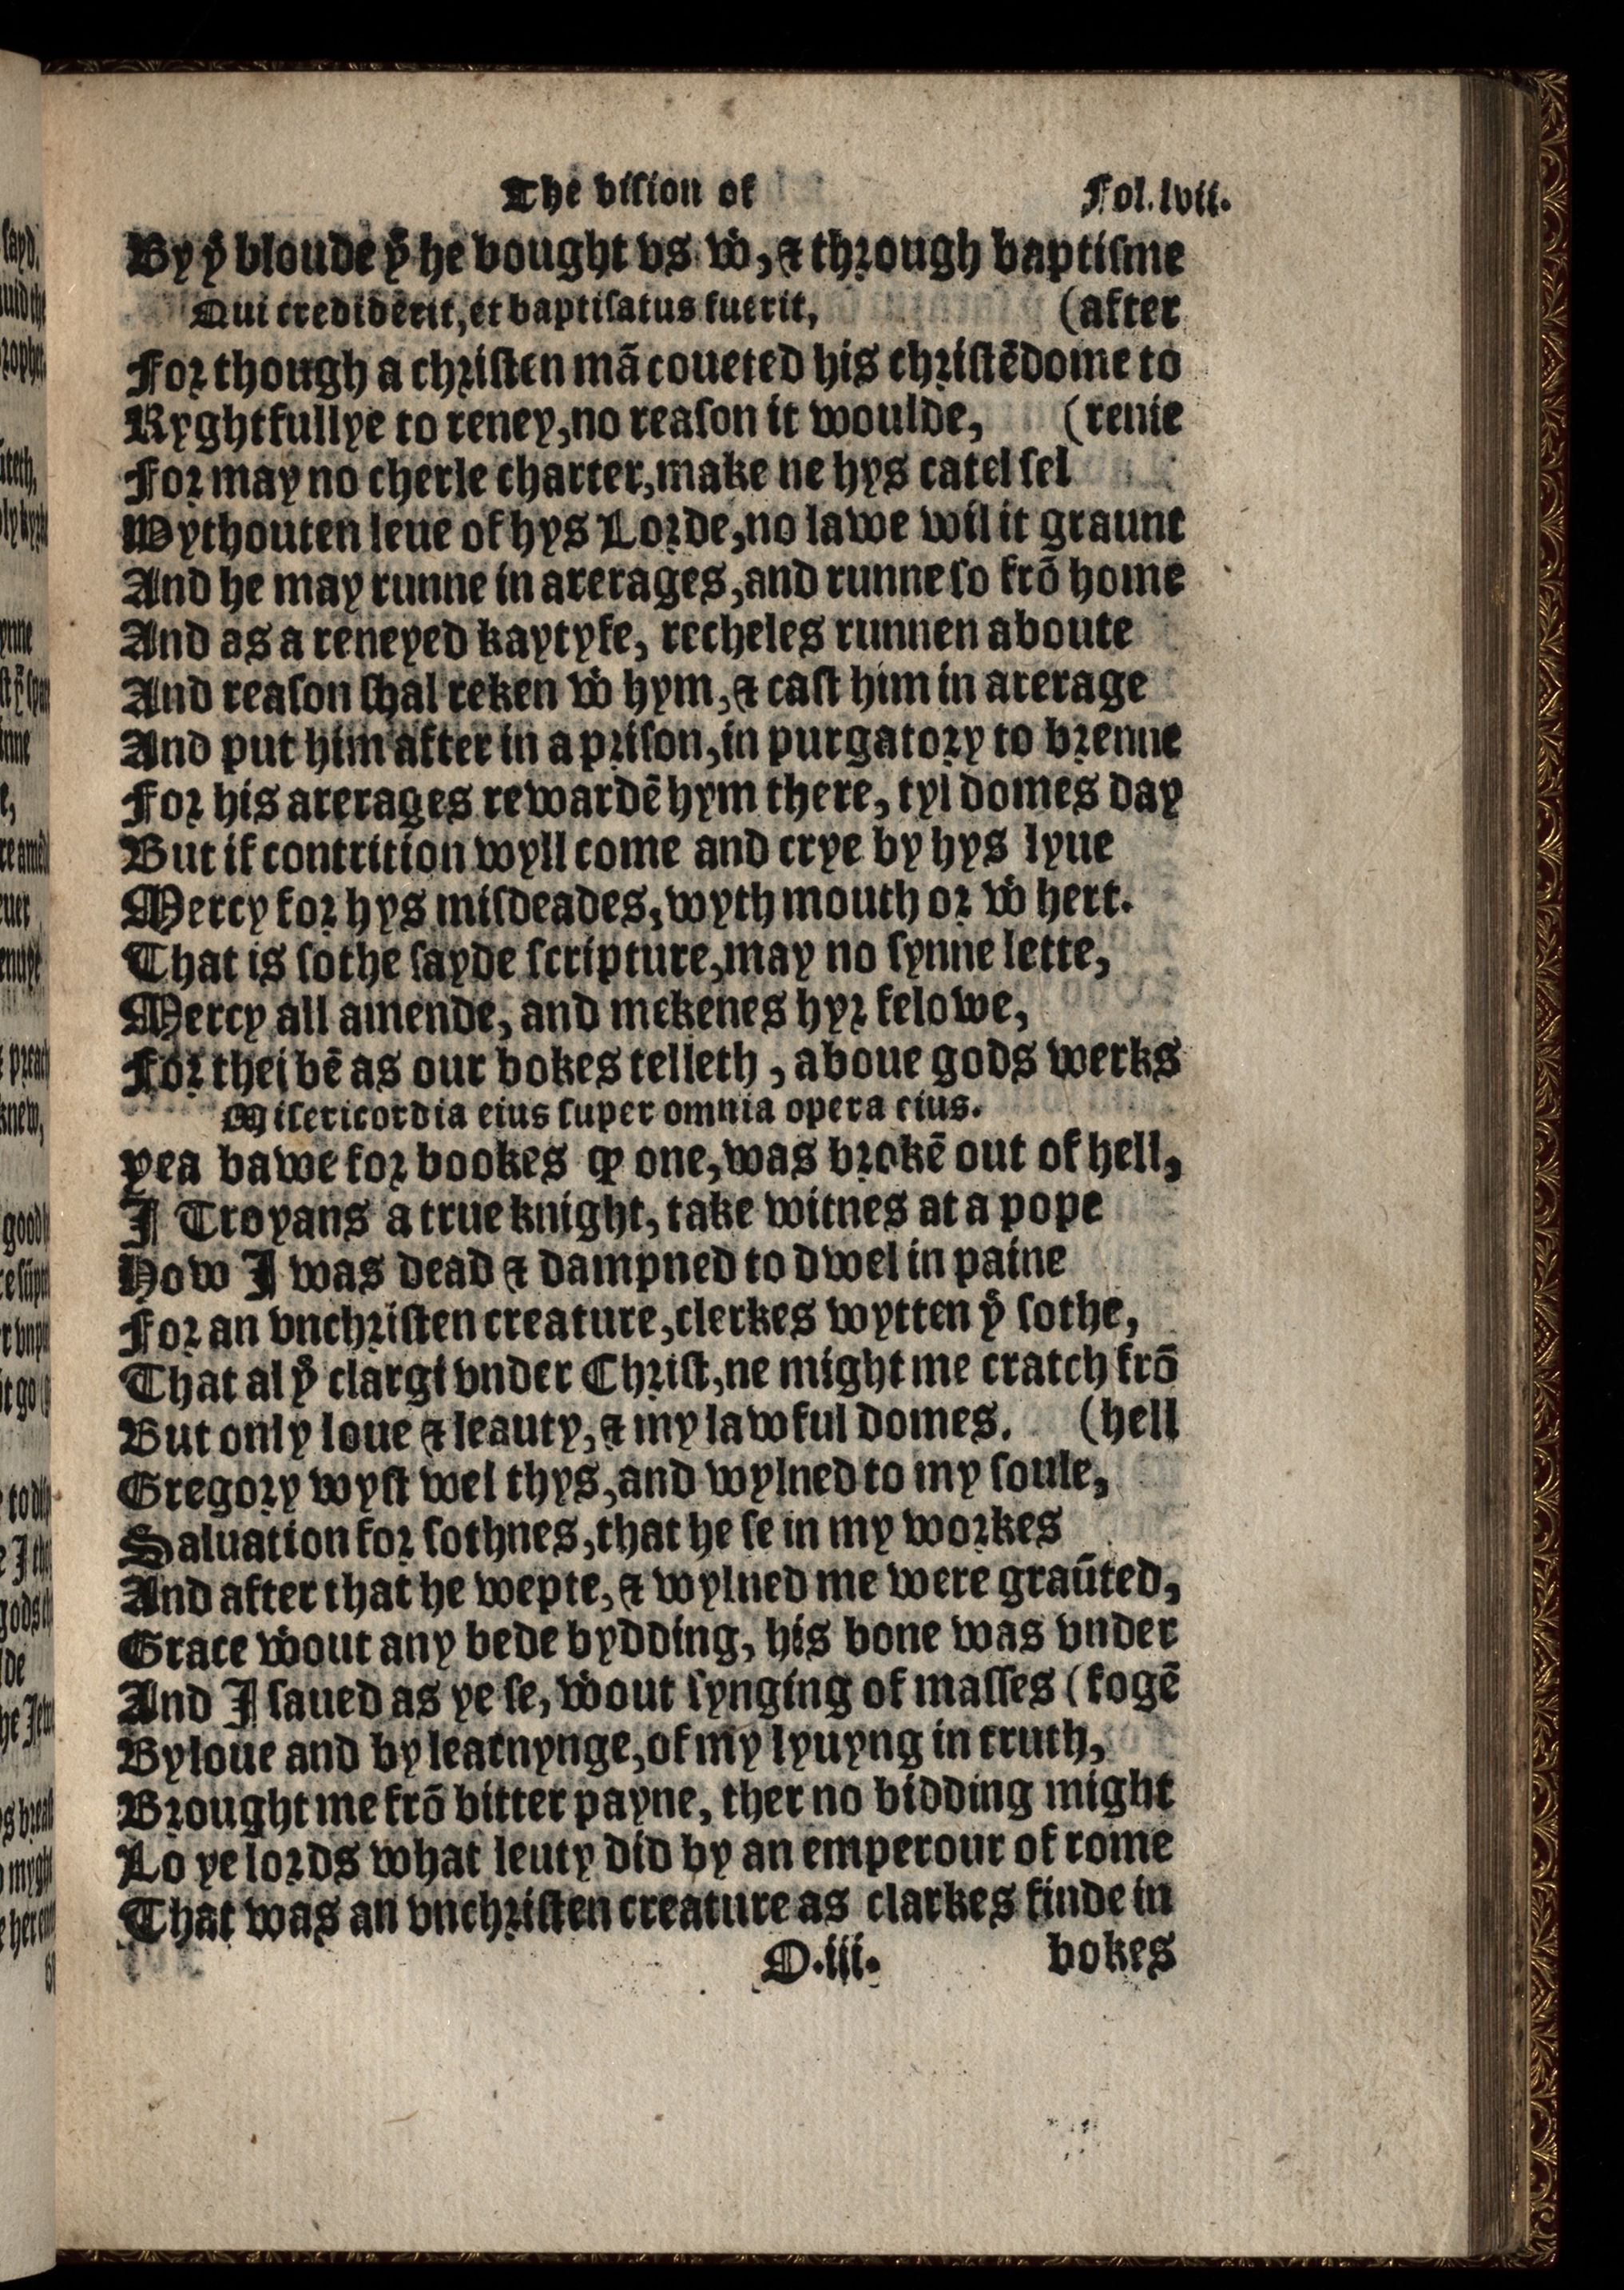 The visiou of Fol.lvii.
By yͤ bloude yͭ he bought vs wͭ, & through baptisme
Qui crediderit, et baptisatus fuerit, (after
For though a christen mā coueted his christēdome to
Ryghtfullye to reney, no reason it woulde, (renie
For may no cherle charter, make ne hys catel sel
Wythouten leue of hys Lorde, no lawe wil it graunt
And he may runne in arerages, and runne so frō home
And as a reneyed kaytyfe, recheles runnen aboute
And reason shal reken wͭ hym, & cast him in arerage
And put him after in a prison, in purgatory to brenne
For his arerages rewardē hym there, tyl domes day
But if contrition wyll come and crye by hys lyue
Mercy for hys misdeades, wyth mouth or wͭ hert.
That is sothe sayde scripture, may no synne lette,
Mercy all amende, and mekenes hyr felowe,
For thei bē as our bokes telleth, aboue gods werks
Misericordia eius super omnia opera eius.
yea bawe for bookes ꝙ one, was brokē out of hell,
I Troyans a true knight, take witnes at a pope
How I was dead & dampned to dwel in paine
For an vnchristen creature, clerkes wytten yͤ sothe,
That al yͤ clargi vnder Christ, ne might me cratch frō
But only loue & leauty, & my lawful domes. (hell
Gregory wyst wel thys, and wylned to my soule,
Saluation for sothnes, that he se in my workes
And after that he wepte, & wylned me were graūted,
Grace wͭout any bede bydding, his bone was vnder
And I saued as ye se, wͭout synging of masses (fogē
By loue and by learnynge, of my lyuyng in truth,
Brought me frō bitter payne, ther no bidding might
Lo ye lords what leuty did by an emperour of rome
That was an vnchristen creature as clarkes finde in
O.iii. bokes